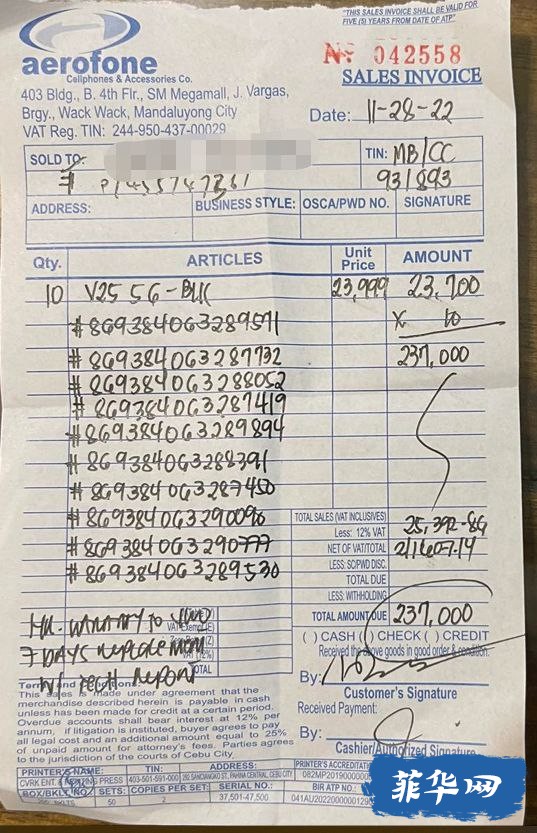 "THIS SALES INVOICE SHALL BE VALID FOR
FIVE (5) YEARS FROM DATE OF ATP"
aerofone
Cellphones & Accessories Co.
№ 042558
SALES INVOICE
403 Bldg., B. 4th Flr., SM Megamall, J. Vargas,
Brgy., Wack Wack, Mandaluyong City
VAT Reg. TIN: 244-950-437-00029
Date: 11-28-22
SOLD TO:
TIN: MB/CC
931893
ADDRESS: BUSINESS STYLE: OSCA/PWD NO. SIGNATURE
Qty. ARTICLES Unit Price AMOUNT
10 V25 5G - BLK 23,999 23,700
#869384063289571 x 10
#869384063287732 237,000
#869384063288052
#869384063287419
#869384063289894
#869384063288391
#869384063287450
#869384063290096
#869384063290777
#869384063289530
TOTAL SALES (VAT INCLUSIVES)
Less: 12% VAT 25,392-86
NET OF VAT/TOTAL 211607.14
LESS: SC/PWD DISC.
TOTAL DUE
LESS: WITHHOLDING
TOTAL AMOUNT DUE 237,000
7 DAYS replacement
w/ tech report
TOTAL
( ) CASH ( ) CHECK ( ) CREDIT
Received the above goods in good order & condition.
By:
Customer's Signature
Received Payment:
By:
Cashier/Authorized Signature
Terms and Conditions:
This sales is made under agreement that the
merchandise described herein is payable in cash
unless has been made for credit at a certain period.
Overdue accounts shall bear interest at 12% per
annum, if litigation is instituted, buyer agrees to pay
all legal cost and an additional amount equal to 25%
of unpaid amount for attorney's fees. Parties agrees
to the jurisdiction of the courts of Cebu City
PRINTER'S NAME: TIN: ADDRESS: PRINTER'S ACCREDITATION
PRESS 403-501-591-000 CENTRAL, CEBU CITY
BOX/BKLT SETS: COPIES PER SET: SERIAL NO.: BIR ATP NO.:
50 2 37,501-47,500
菲华网